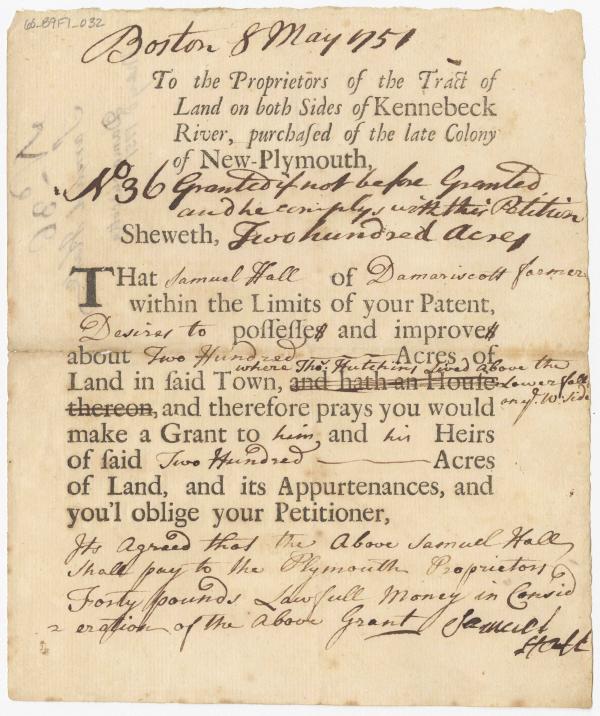 66-89F1-032
Boston 8 May 1751
To the Proprietors of the Tract of
Land on both Sides of Kennebeck
River, purchaſed of the late Colony
of New-Plymouth,
No 36 Granted if not before Granted
and he complys with this Petition
Sheweth, Two hundred Acres
THat Samuel Hall of Damariscott farmer
within the Limits of your Patent,
Desires to poſſeſſes and improves
about Two Hundred Acres of
where Thos. Hutchins Lived Above the
Land in ſaid Town, and hath an Houſe Lower falls
thereon, and therefore prays you would on ye. W. Side
make a Grant to him and his Heirs
of ſaid Two Hundred Acres
of Land, and its Appurtenances, and
you'l oblige your Petitioner,
Its Agreed that the Above Samuel Hall
Shall pay to the Plymouth Proprietors
Forty pounds Lawfull Money in Consid
eration of the Above Grant Samuel
Hall